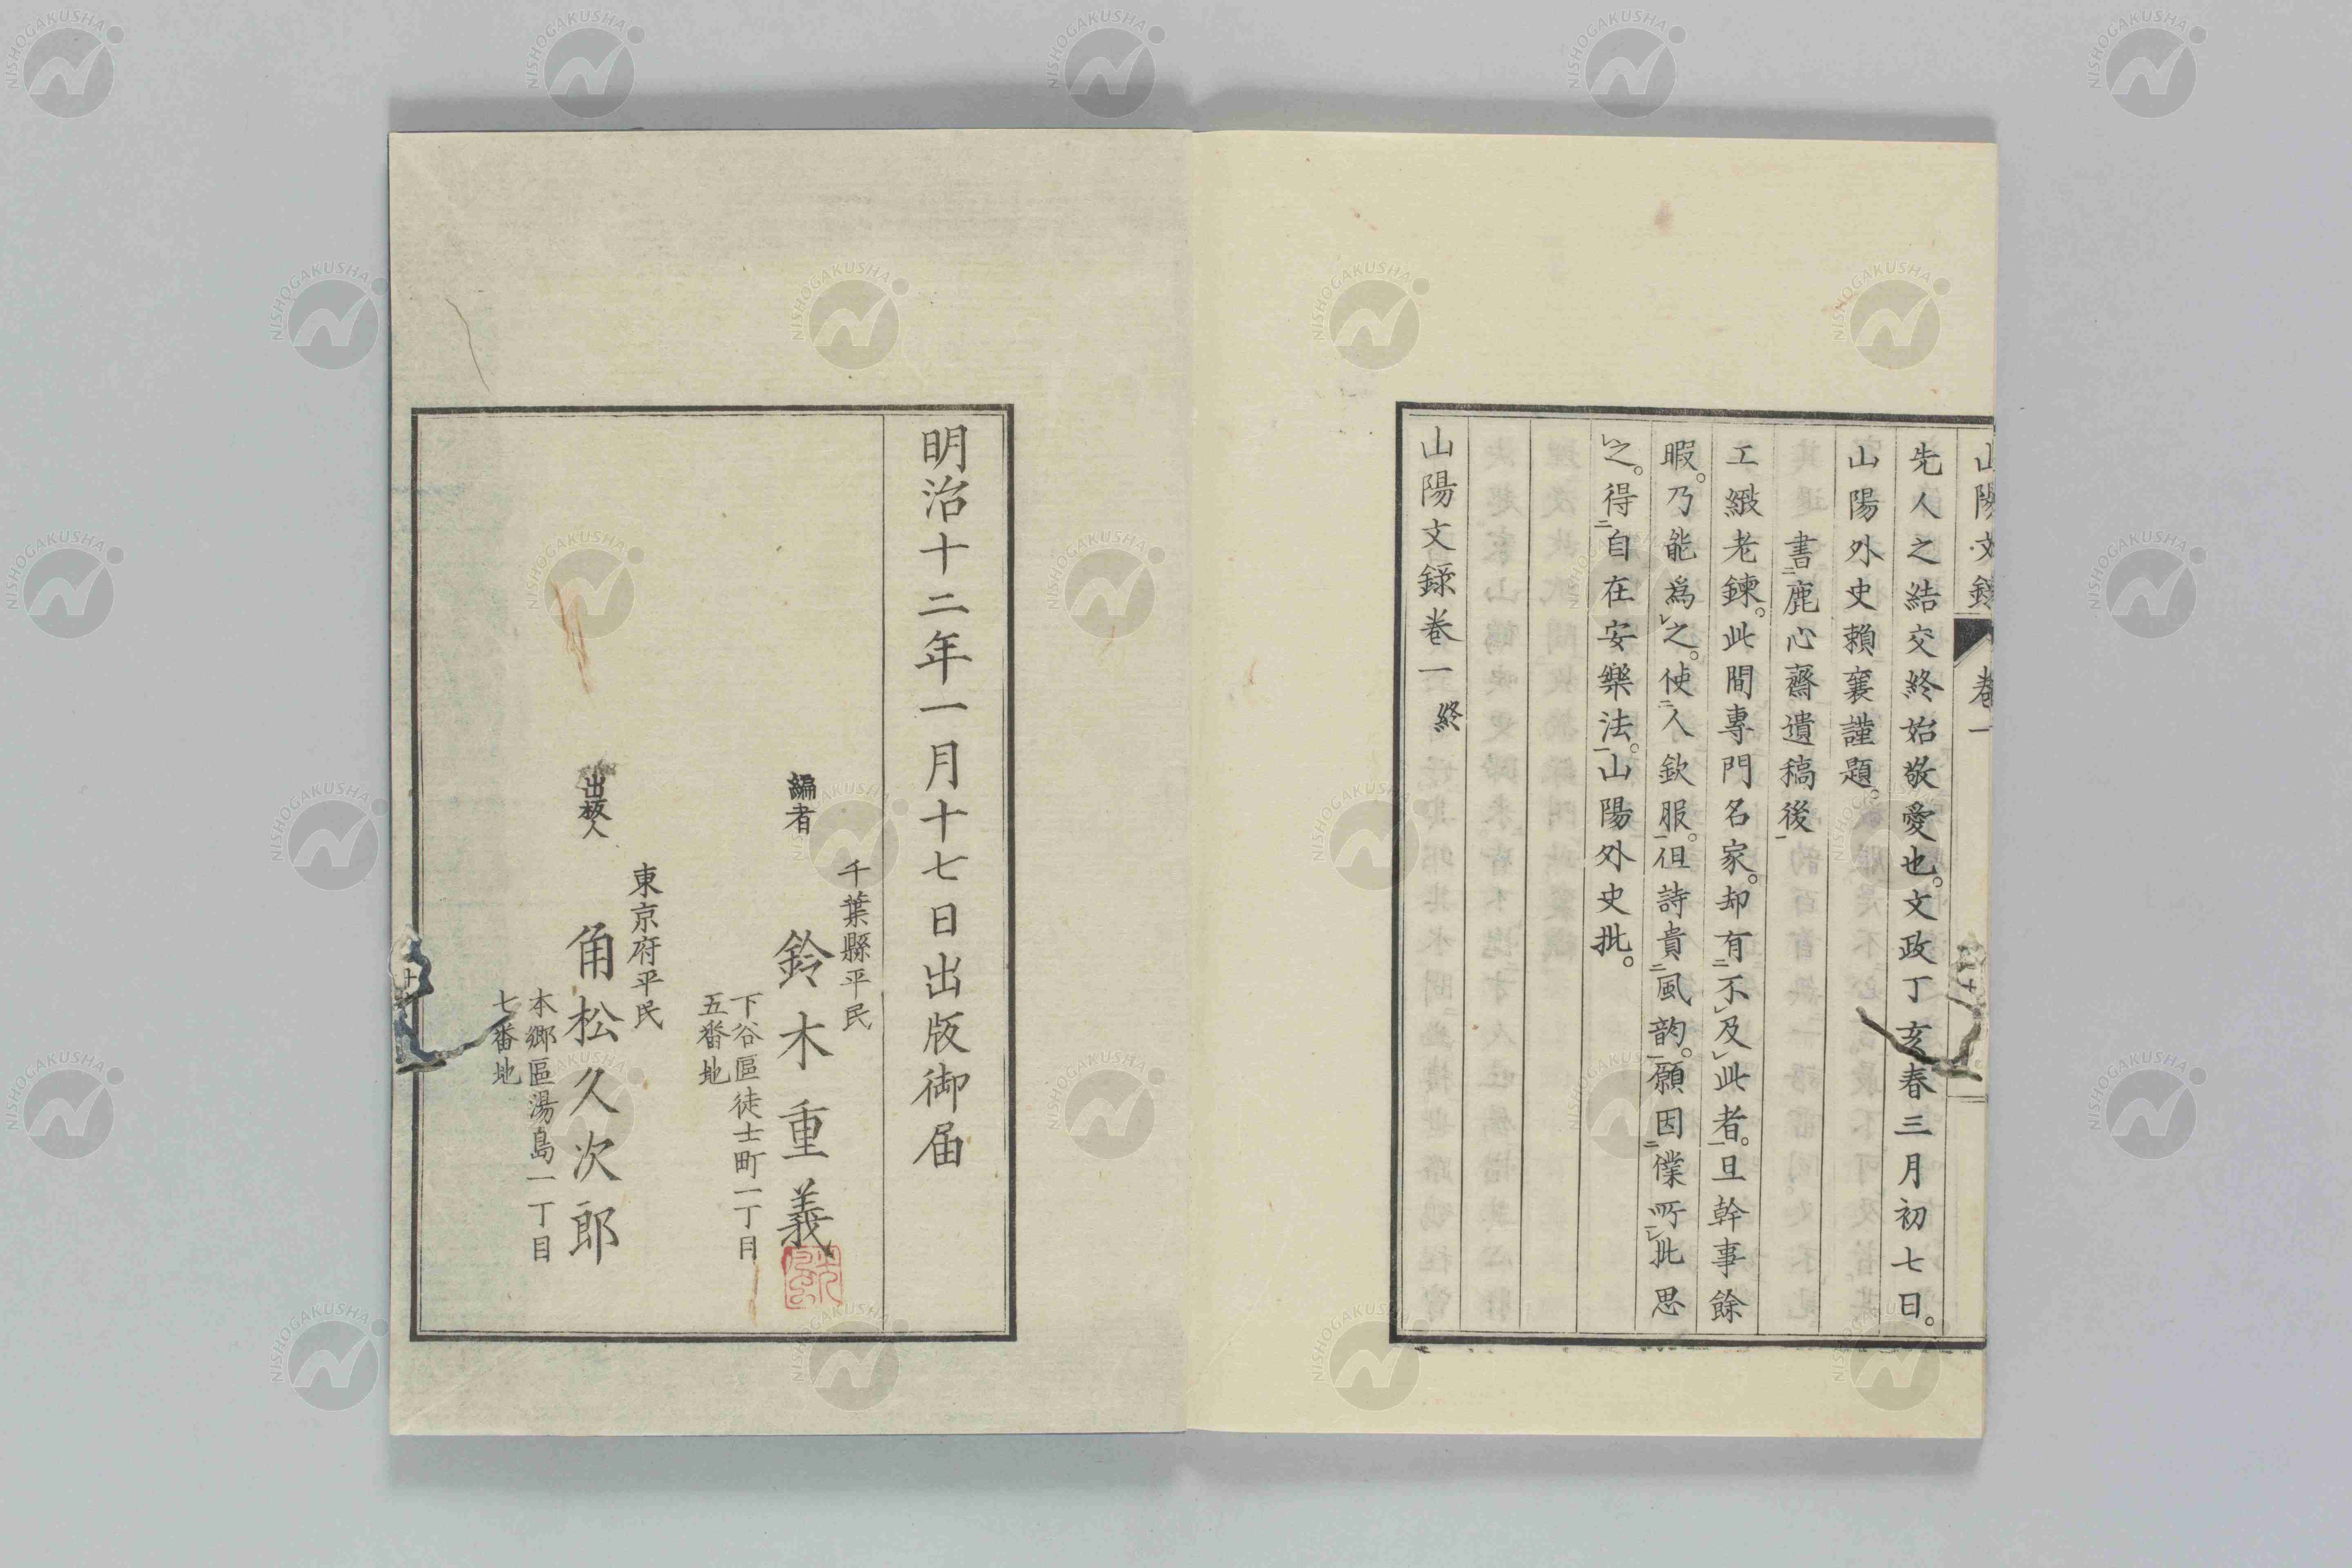 山陽文錄 卷一
先人之結交終始敬愛也。文政丁亥春三月初七日。
山陽外史賴襄謹題。
書二鹿心齋遺稿後一
工緻老鍊。此間專門名家。却有二不レ及レ此者一。且幹事餘
暇。乃能爲レ之。使二人欽服一。但詩貴二風韵一。願因二僕所一レ批思
レ之。得二自在安樂法一。山陽外史批。
山陽文錄卷一 終
明治十二年一月十七日出版御届
千葉縣平民
編者 鈴木重義
下谷區徒士町一丁目
五番地
東京府平民
出板人 角松久次郎
本郷區湯島一丁目
七番地
NISHOGAKUSHA